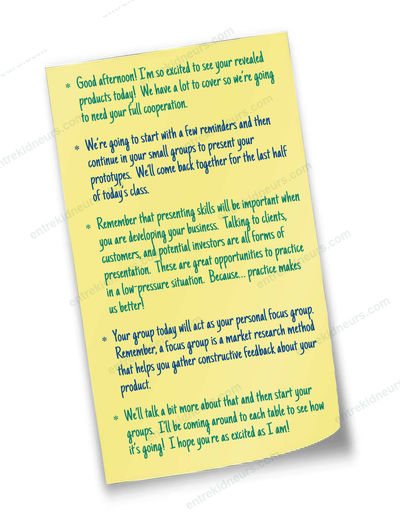 * Good afternoon! I'm so excited to see your revealed
products today! We have a lot to cover so we're going
to need your full cooperation.
* We're going to start with a few reminders and then
continue in your small groups to present your
prototypes. We'll come back together for the last half
of today's class.
* Remember that presenting skills will be important when
you are developing your business. Talking to clients,
customers, and potential investors are all forms of
presentation. These are great opportunities to practice
in a low-pressure situation. Because... practice makes
us better!
* Your group today will act as your personal focus group.
Remember, a focus group is a market research method
that helps you gather constructive feedback about your
product.
* We'll talk a bit more about that and then start your
groups. I'll be coming around to each table to see how
it's going! I hope you're as excited as I am!
entrekidneurs.com